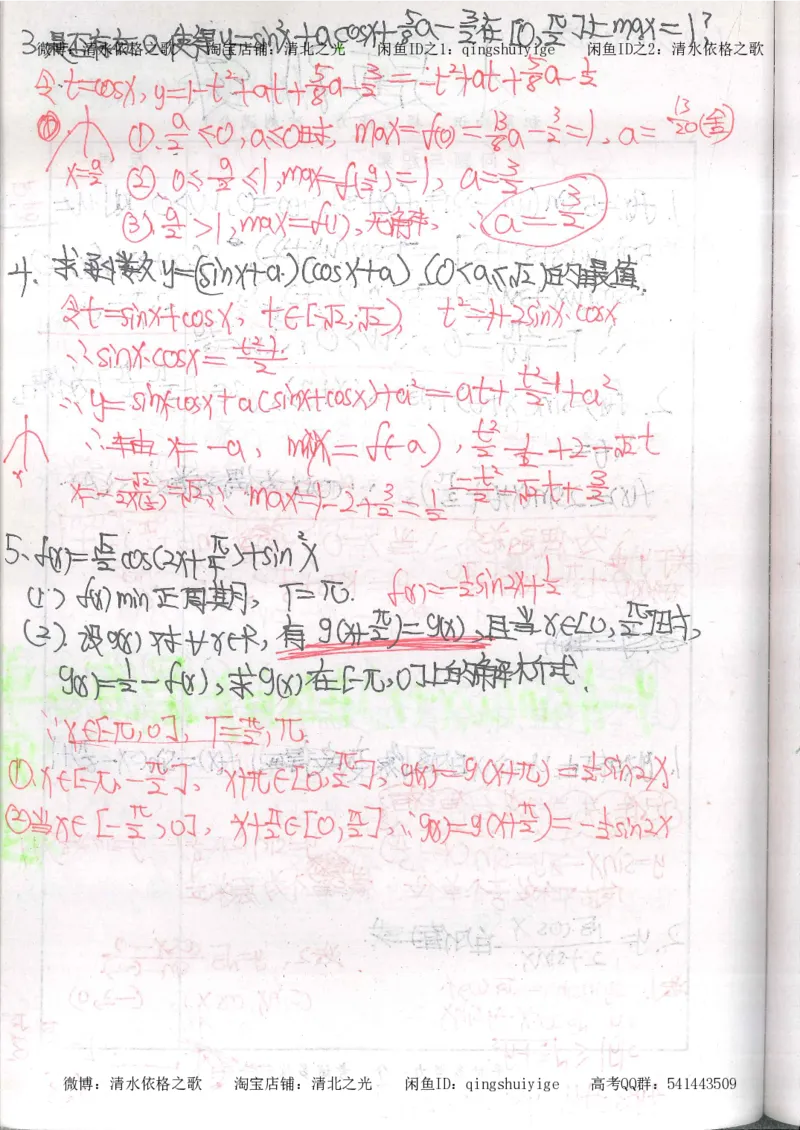 3. 是否存在a,使得y=sin²x+acosx+5/8a-3/2在[0,π/2]上max=1?
微博:清水依格之歌 淘宝店铺:清北之光 闲鱼ID之1:qingshuiyige 闲鱼ID之2:清水依格之歌
令t=cosx, y=1-t²+at+5/8a-3/2=-t²+at+5/8a-1/2
①. a/2≤0, a≤0时, max=f(0)=13/8a-3/2=1, a=13/20(舍)
x=a/2 ②. 0≤a/2≤1, max=f(a/2)=1, a=3/2
③. a/2>1, max=f(1), 无解, ∴a=3/2
4. 求函数y=(sinx+a)(cosx+a) (0<a≤√2)的最值.
令t=sinx+cosx, t∈[-√2,√2], t²=1+2sinx·cosx
∴sinx·cosx=(t²-1)/2
∴y=sinxcosx+a(sinx+cosx)+a²=at+(t²-1)/2+a²
x=-a, max=f(-a), t²/2-1/2+2-√2t
max=1-2+3/2=1/2
5. f(x)=√2/2cos(2x+π/4)+sin²x
(1) f(x)min正周期, T=π. f(x)=-1/2sin2x+1/2
(2). 设g(x)对∀x∈R, 有g(x+π/2)=g(x), 且当x∈[0,π/2]时,
g(x)=1/2-f(x), 求g(x)在[-π,0]上的解析式.
∵x∈[-π,0], T=π/2, π.
①. x∈[-π,-π/2], x+π∈[0,π/2], g(x)=g(x+π)=1/2sin2x
②当x∈[-π/2,0], x+π/2∈[0,π/2], ∴g(x)=g(x+π/2)=-1/2sin2x
微博:清水依格之歌 淘宝店铺:清北之光 闲鱼ID:qingshuiyige 高考QQ群:541443509